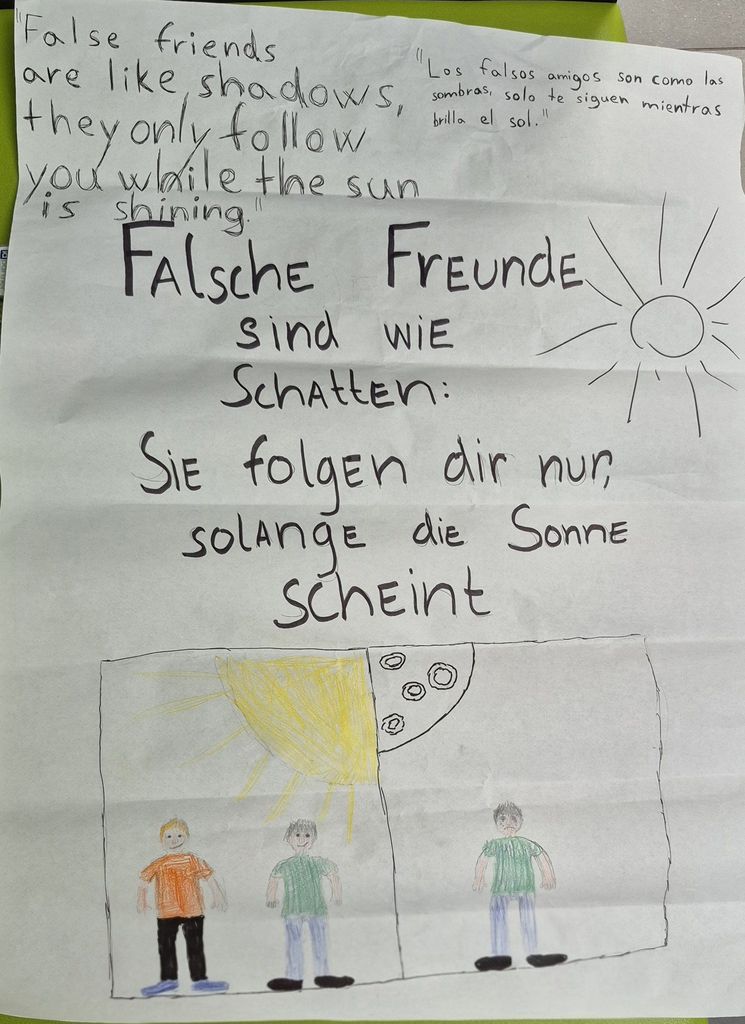 "False friends
are like shadows,
they only follow
you while the sun
is shining."
"Los falsos amigos son como las
sombras, solo te siguen mientras
brilla el sol."
Falsche Freunde
sind wie
Schatten:
Sie folgen dir nur,
solange die Sonne
scheint